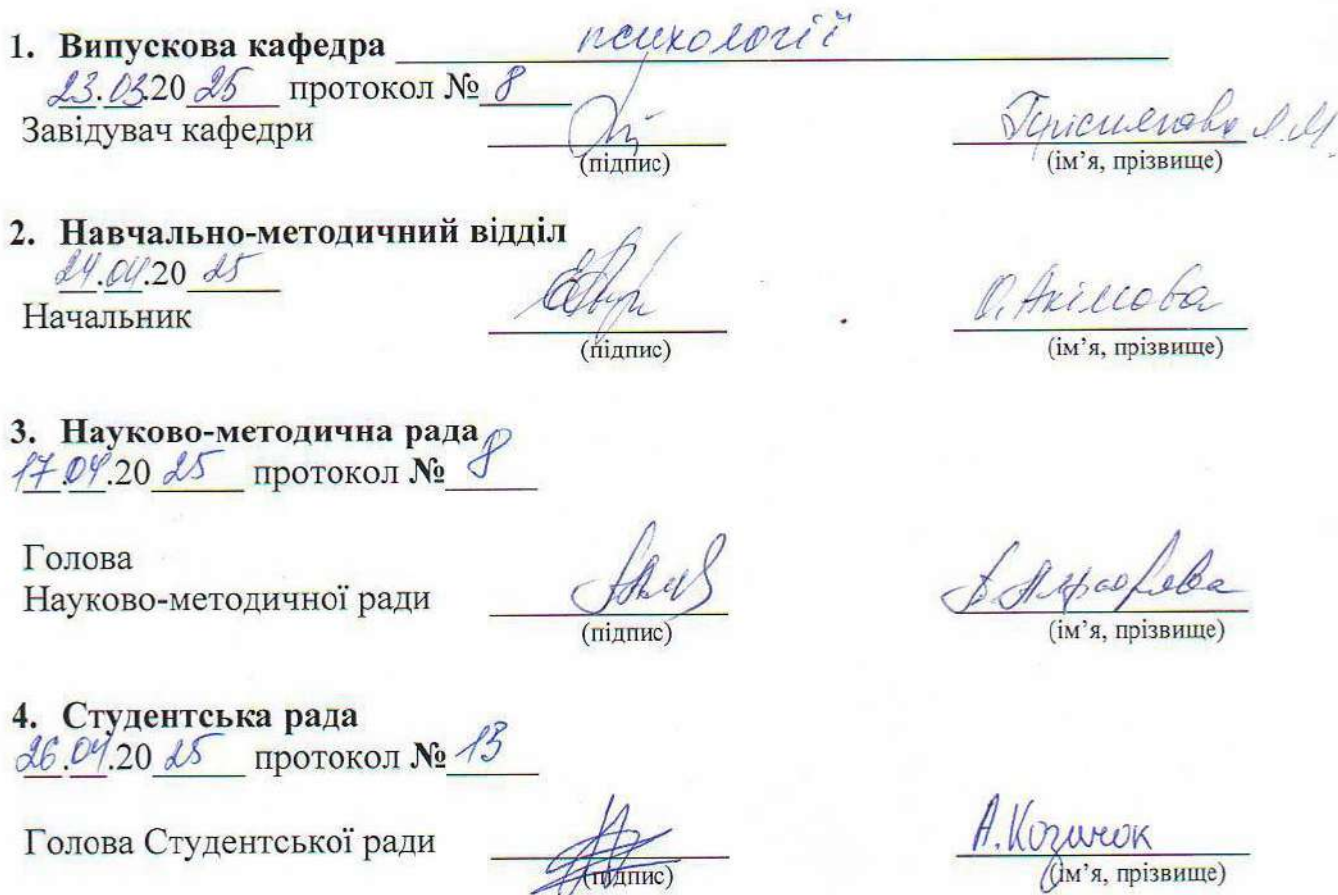 1. Випускова кафедра психології
23.03.2025 протокол № 8
Завідувач кафедри
(підпис) (ім’я, прізвище)
2. Навчально-методичний відділ
24.04.2025
Начальник О. Акімова
(підпис) (ім’я, прізвище)
3. Науково-методична рада
17.04.2025 протокол № 8
Голова
Науково-методичної ради
(підпис) (ім’я, прізвище)
4. Студентська рада
26.04.2025 протокол № 13
Голова Студентської ради А. Козинок
(підпис) (ім’я, прізвище)